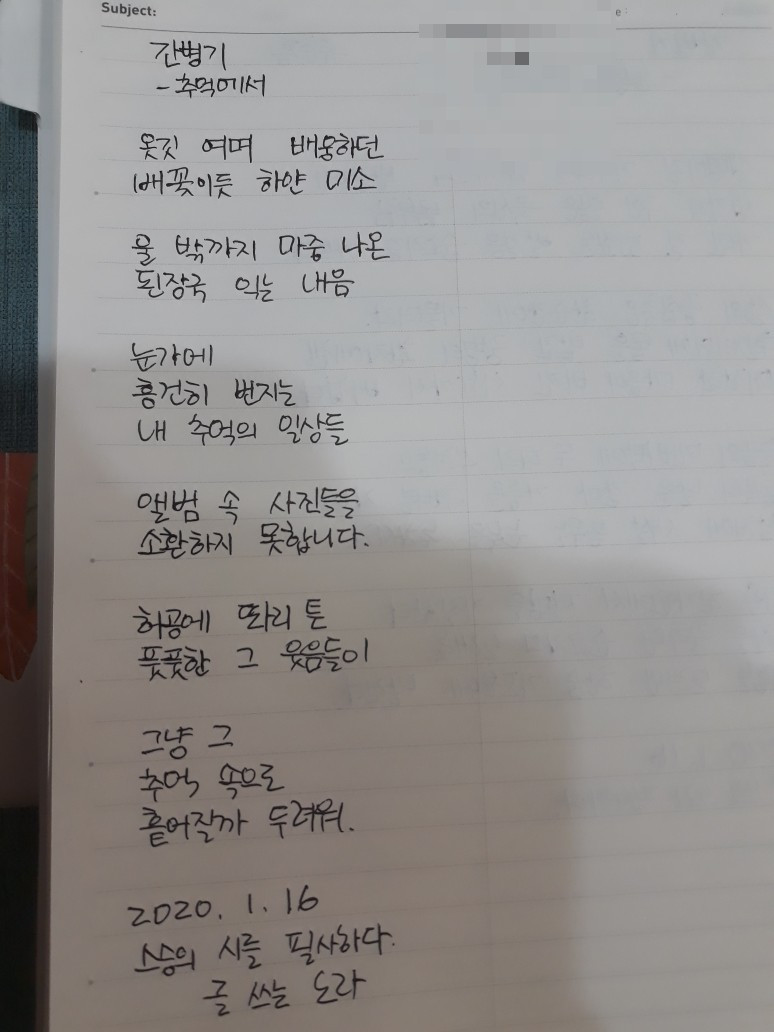 Subject:
간병기
- 추억에서
옷깃 여며 배웅하던
배꽃이듯 하얀 미소
울 밖까지 마중 나온
된장국 익는 내음
눈가에
흥건히 번지는
내 추억의 일상들
앨범 속 사진들을
소환하지 못합니다.
허공에 똬리 튼
풋풋한 그 웃음들이
그냥 그
추억 속으로
흩어질까 두려워.
2020. 1. 16
스승의 시를 필사하다.
글 쓰는 도라